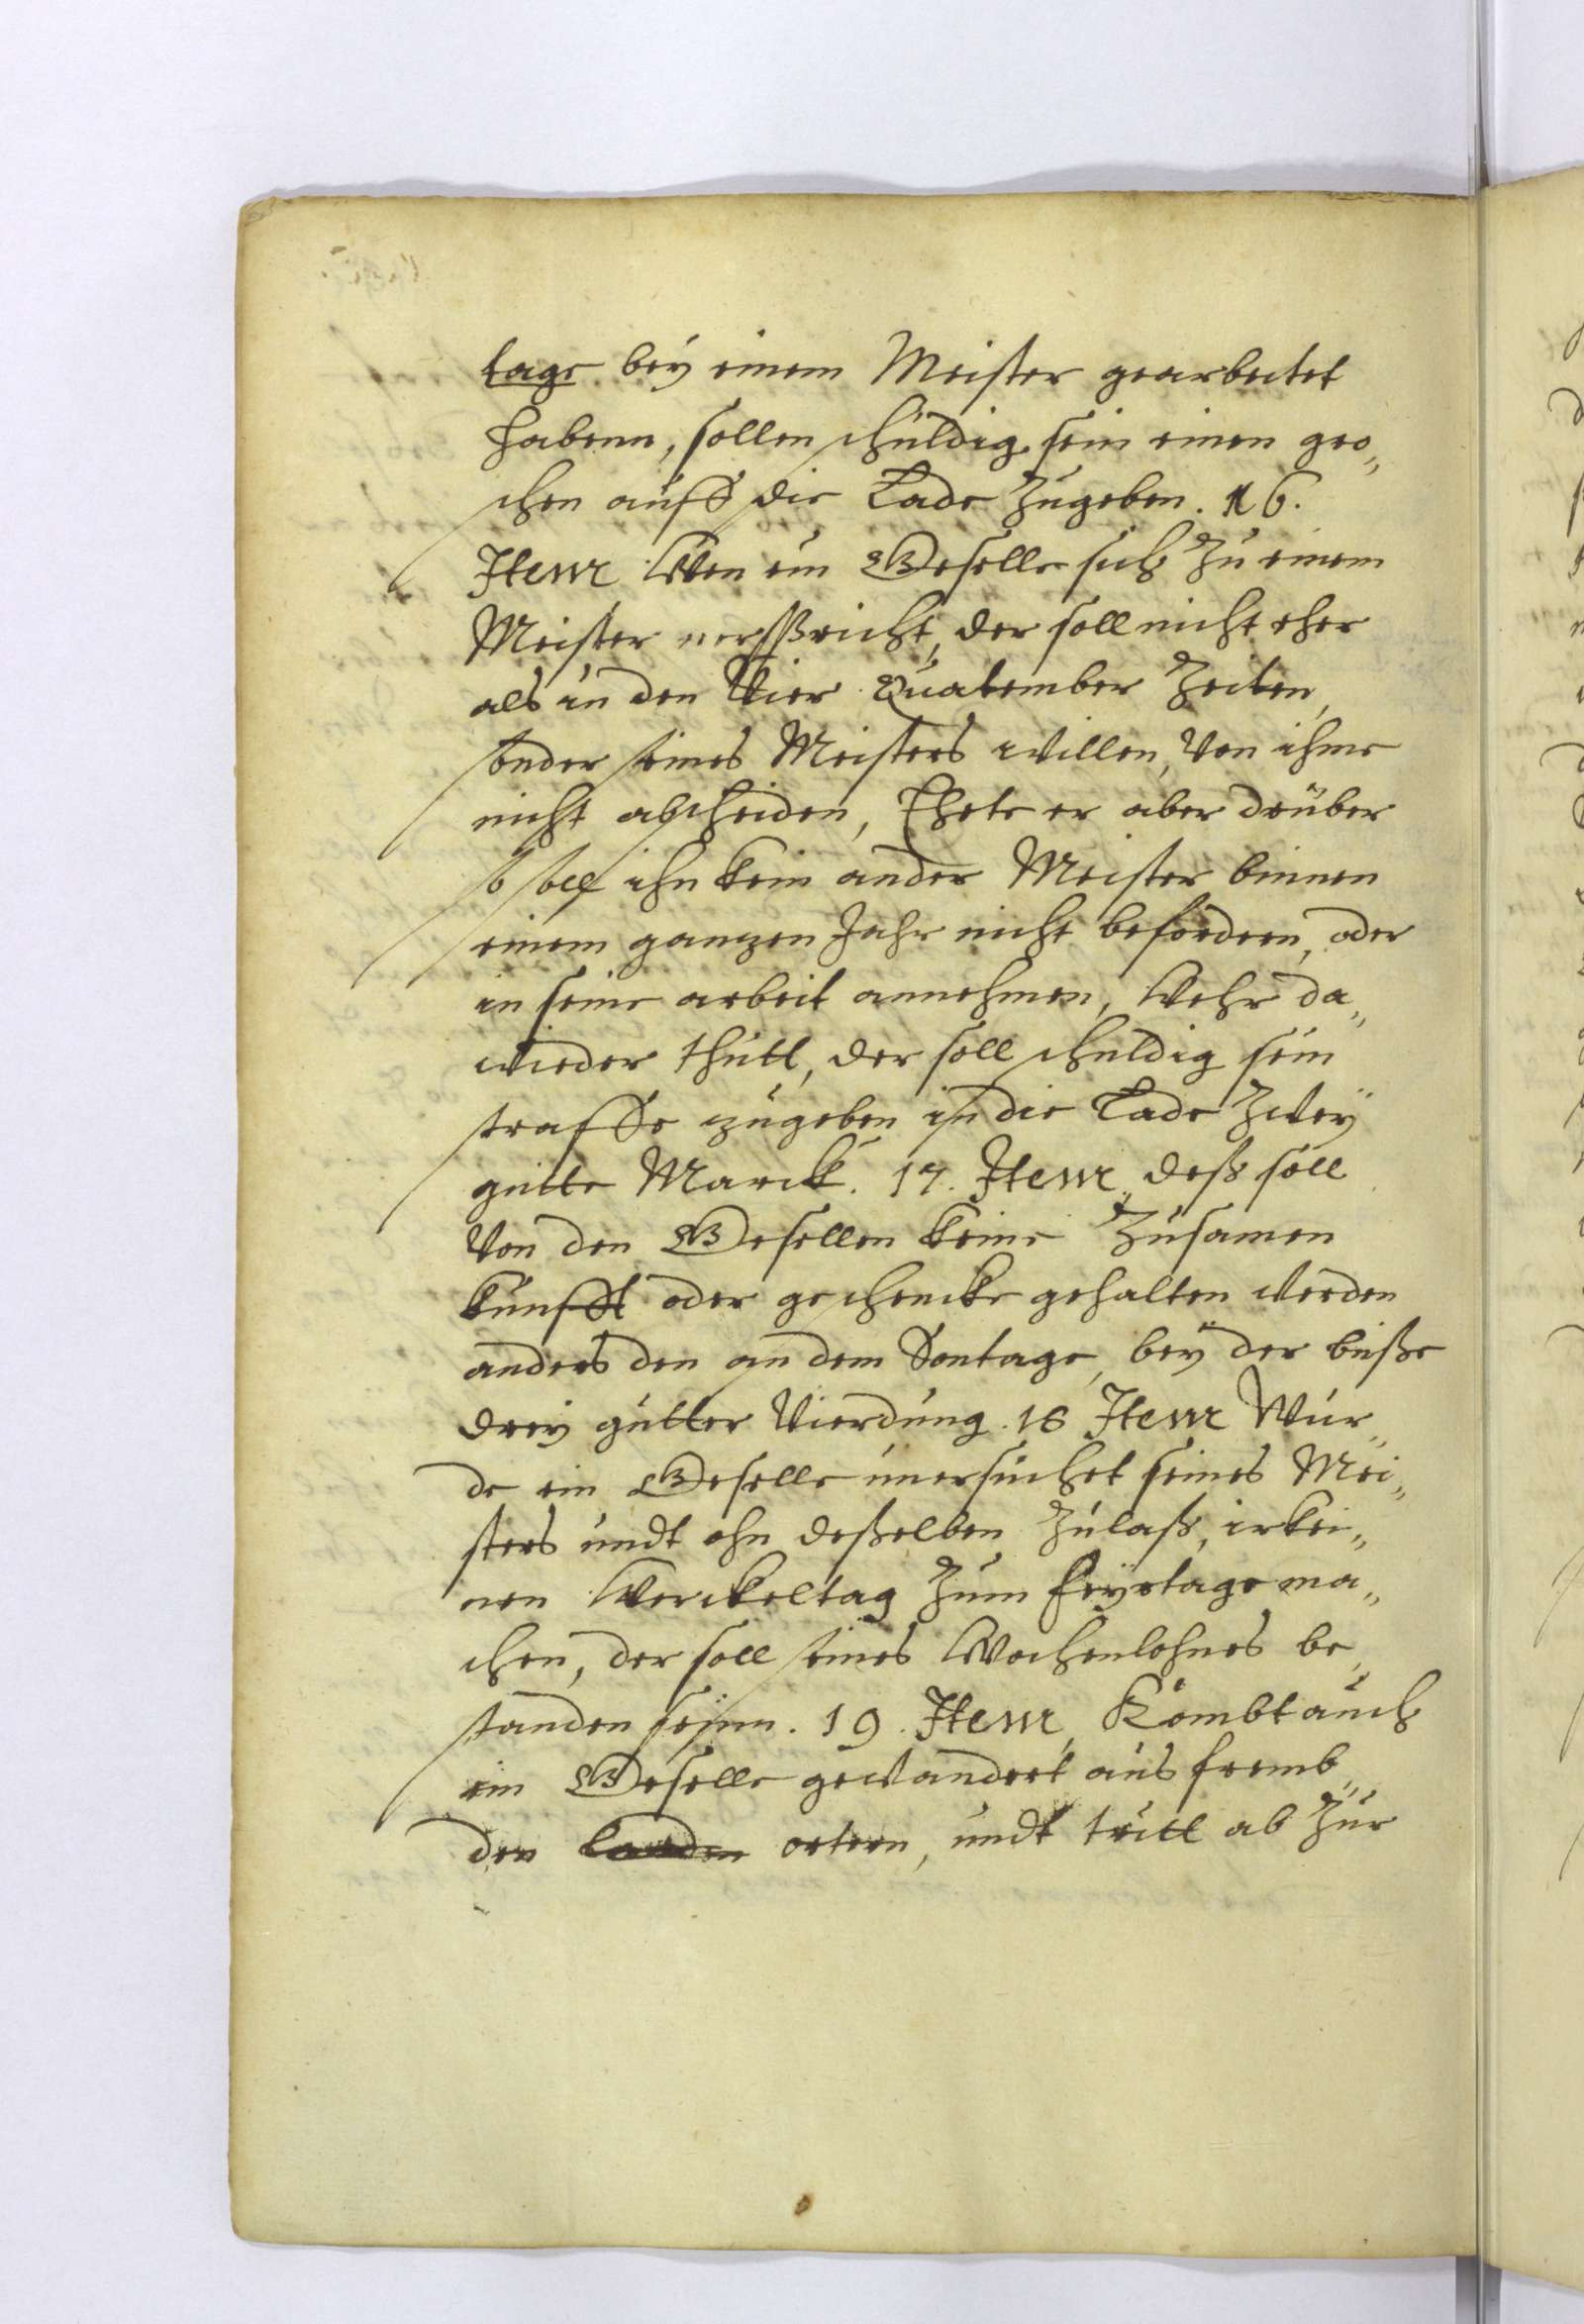 tage beÿ einem Meister gearbeitet
habenn, sollen schuldig sein einen gro„
schen auff die Lade Zugeben. 16.
Item Wen ein Geselle sich Zu einem
Meister verspricht, der soll nicht eher
als in den Vier Quatember Zeiten,
sonder seines Meisters willen, Von ihme
nicht abscheiden, Thete er aber drüber
so soll ihn kein ander Meister binnen
einem ganzen Jahr nicht befördern, oder
in seine arbeit annehmen, Wehr da„
wieder thutt, der soll schuldig sein
straffe zugeben in die Lade Zweÿ
gutte Marck. 17. Item, deß soll
Von den Gesellen keine Zusamen
kunfft oder geschencke gehalten werden
anders den an dem Sontage, beÿ der busse
dreÿ gutter Vierdung. 18 Item Wur„
de ein Geselle unersuchet seines Mei„
sters undt ohn deßelben Zulaß, irkei„
nen Werckeltag Zum feÿrtage ma„
chen, der soll seines Wochenlohnes be„
standen seÿnn. 19. Item, Kombt auch
ein Geselle gewandert aus fremb„
den landen ortern, undt tritt ab Zur